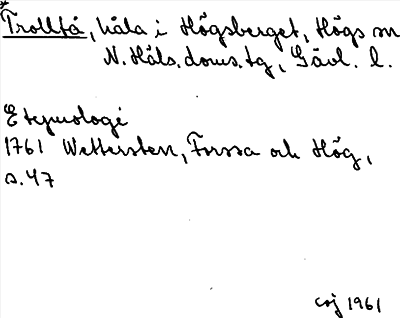 *Trollfå, håla i Högsberget, Högs sn
N. Häls. doms. tg, Gävl. l.
Etymologi
1761 Wettersten, Forssa och Hög,
s. 47
coj 1961